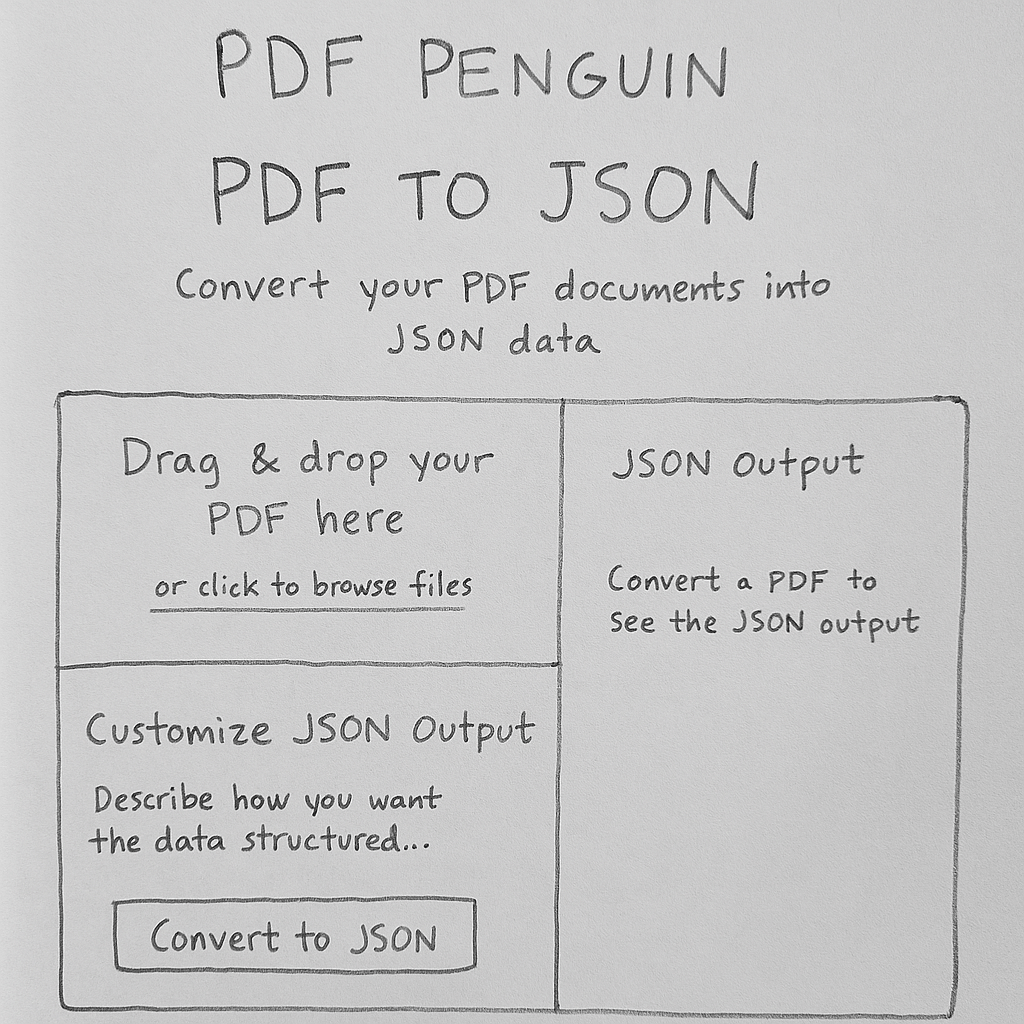 PDF PENGUIN
PDF TO JSON
Convert your PDF documents into
JSON data
Drag & drop your
PDF here
or click to browse files
Customize JSON Output
Describe how you want
the data structured...
Convert to JSON
JSON Output
Convert a PDF to
see the JSON output